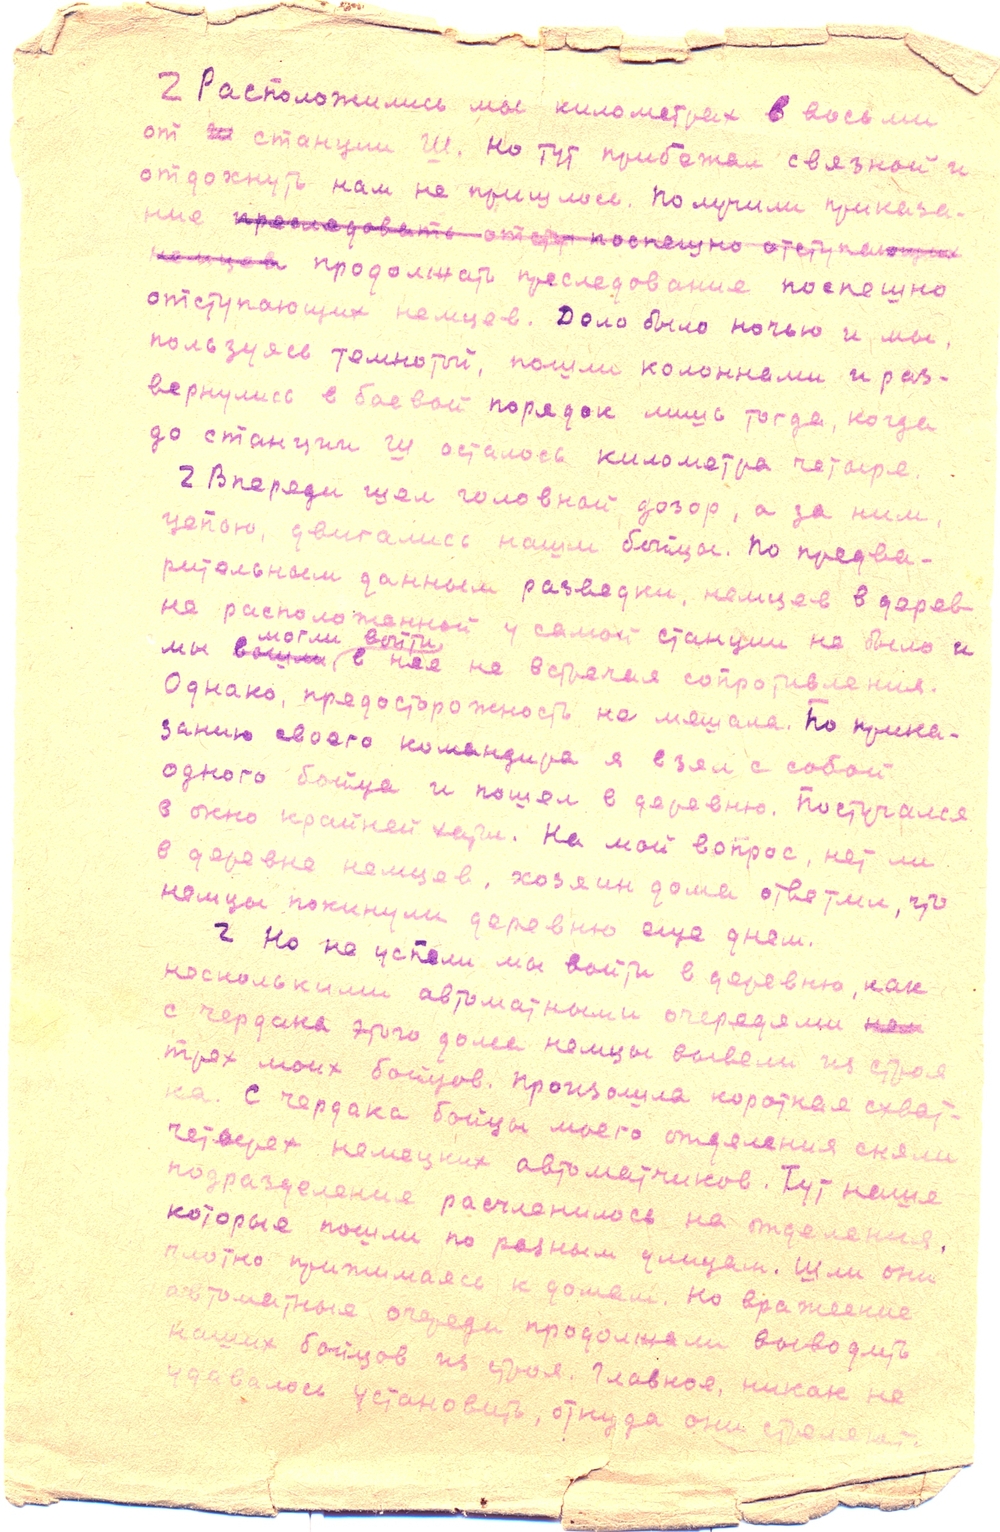 Расположились мы километрах в восьми
от станции Ш. Но тут прибежал связной и
отдохнуть нам не пришлось. Получили приказа-
ние преследовать отсту поспешно отступающих
немцев продолжать преследование поспешно
отступающих немцев. Дело было ночью и мы,
пользуясь темнотой, пошли колоннами и раз-
вернулись в боевой порядок лишь тогда, когда
до станции Ш осталось километра четыре.
Впереди шел головной дозор, а за ним,
цепью, двигались наши бойцы. По предва-
рительным данным разведки, немцев в дерев-
не расположенной у самой станции не было и
могли войти
мы вошли в нее не встречая сопротивления.
Однако, предосторожность не мешала. По прика-
занию своего командира я взял с собой
одного бойца и пошел в деревню. Постучался
в окно крайней хаты. На мой вопрос, нет ли
в деревне немцев, хозяин дома ответил, что
немцы покинули деревню еще днем.
Но не успели мы войти в деревню, как
несколькими автоматными очередями нем
с чердака этого дома немцы вывели из строя
трех моих бойцов. Произошла короткая схват-
ка. С чердака бойцы моего отделения сняли
четверех немецких автоматчиков. Тут наше
подразделение расчленилось на отделения,
которые пошли по разным улицам. Шли они
плотно прижимаясь к домам. Но вражеские
автоматные очереди продолжали выводить
наших бойцов из строя. Главное, никак не
удавалось установить, откуда они стреляют.